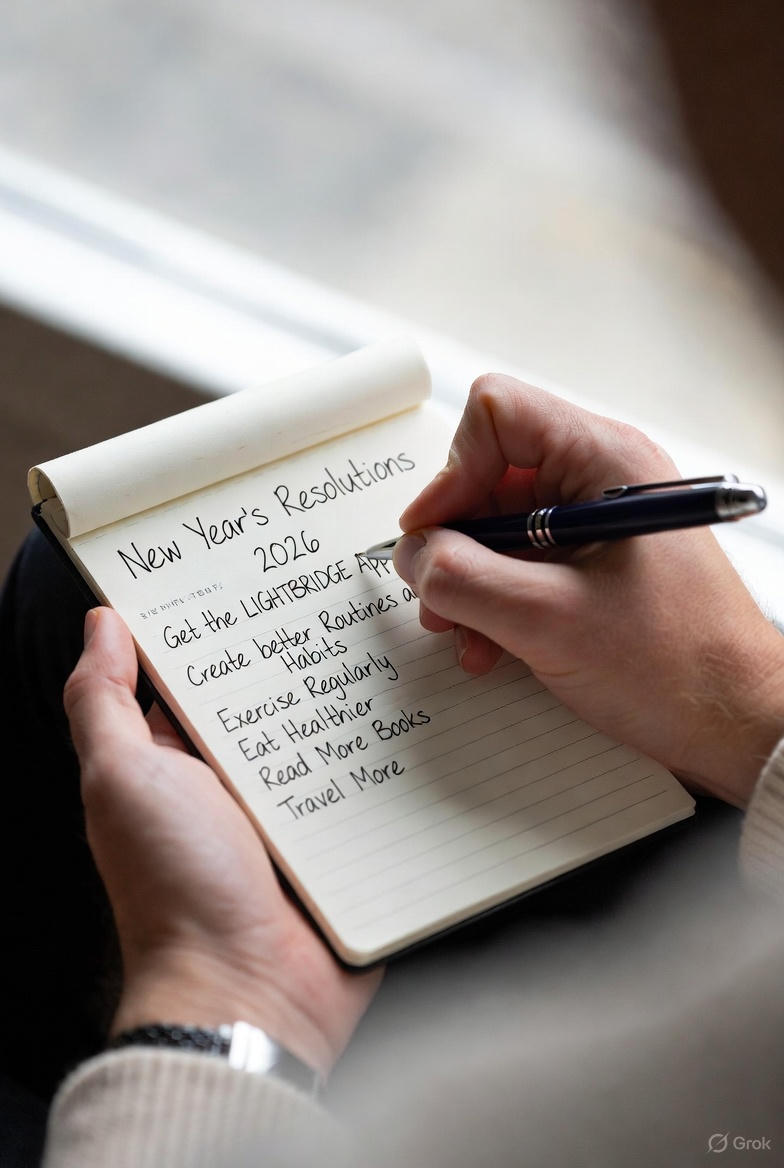 New Year's Resolutions
2026
Get the LIGHTBRIDGE App
Create better Routines a
Habits
Exercise Regularly
Eat Healthier
Read More Books
Travel More
Grok